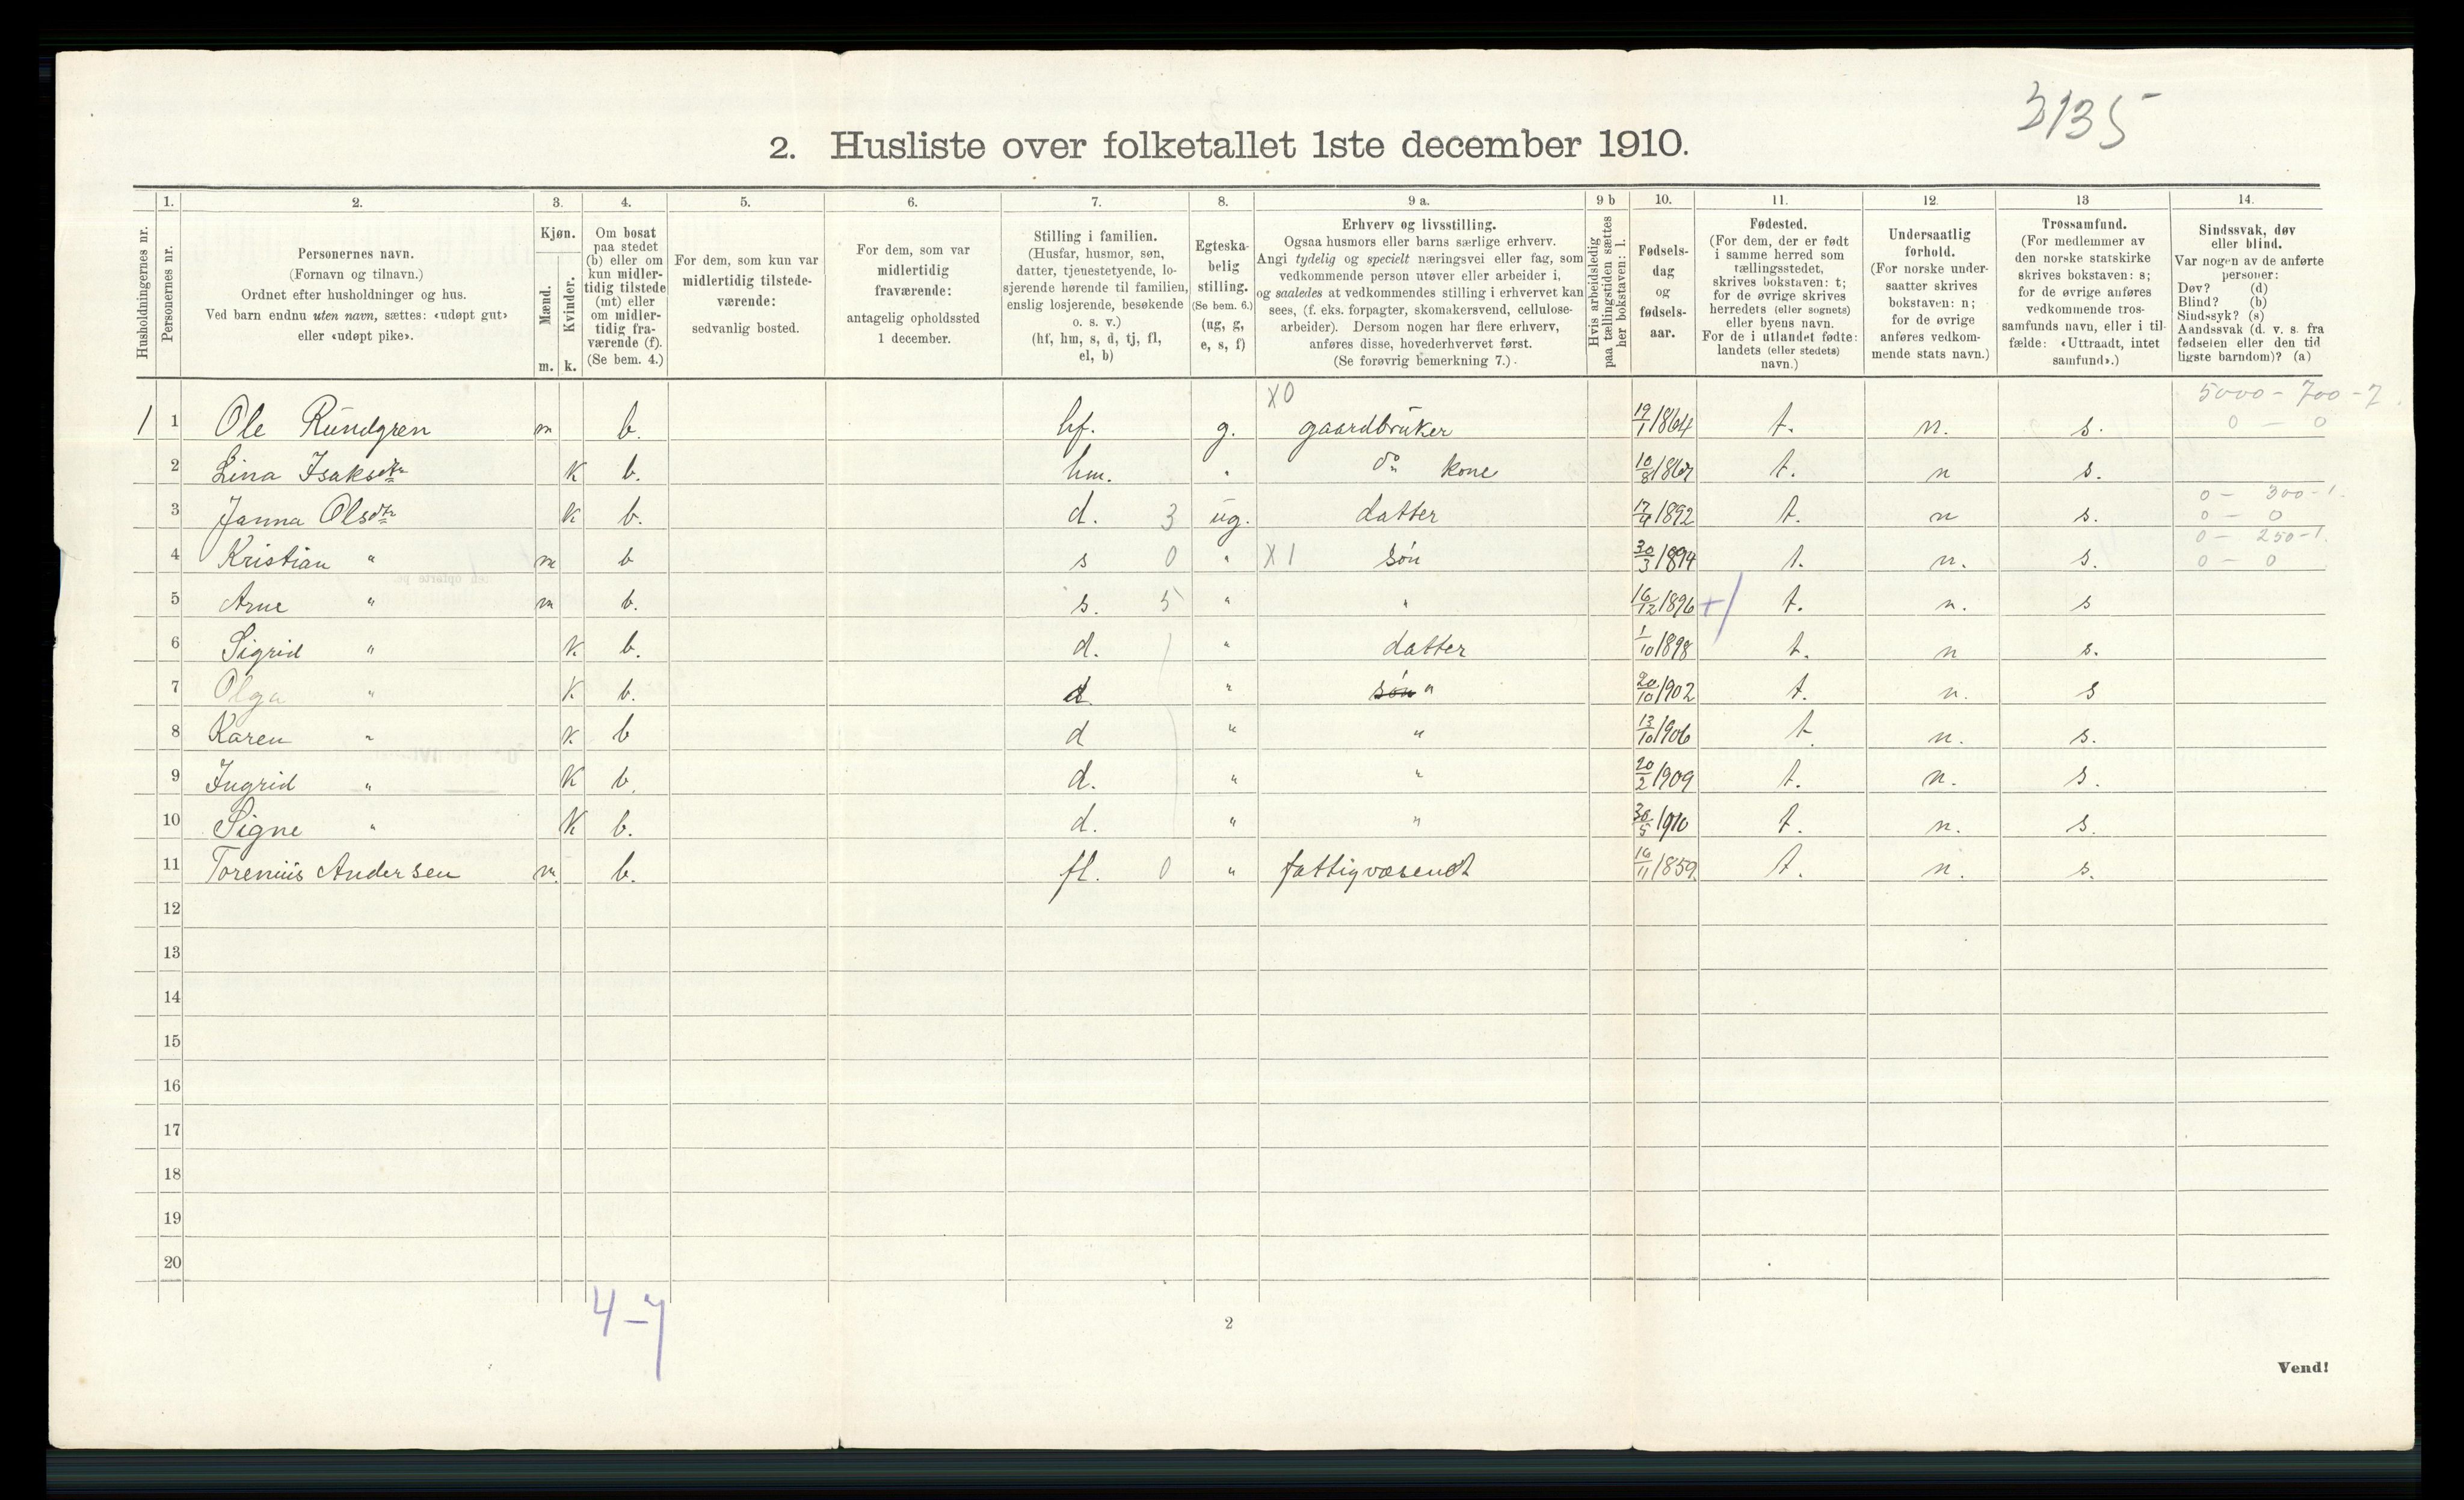 3135
2. Husliste over folketallet 1ste december 1910.
Husholdningernes nr.
1. Personernes nr.
2. Personernes navn.
(Fornavn og tilnavn.)
Ordnet efter husholdninger og hus.
Ved barn endnu uten navn, sættes: «udøpt gut»
eller «udøpt pike».
3. Kjøn.
Mænd. m.
Kvinder. k.
4. Om bosat
paa stedet
(b) eller om
kun midler-
tidig tilstede
(mt) eller
om midler-
tidig fra-
værende (f).
(Se bem. 4.)
5. For dem, som kun var
midlertidig tilstede-
værende:
sedvanlig bosted.
6. For dem, som var
midlertidig
fraværende:
antagelig opholdssted
1 december.
7. Stilling i familien.
(Husfar, husmor, søn,
datter, tjenestetyende, lo-
sjerende hørende til familien,
enslig losjerende, besøkende
o. s. v.)
(hf, hm, s, d, tj, fl,
el, b)
8. Egteska-
belig
stilling.
(Se bem. 6.)
(ug, g,
e, s, f)
9 a. Erhverv og livsstilling.
Ogsaa husmors eller barns særlige erhverv.
Angi tydelig og specielt næringsvei eller fag, som
vedkommende person utøver eller arbeider i,
og saaledes at vedkommendes stilling i erhvervet kan
sees, (f. eks. forpagter, skomakersvend, cellulose-
arbeider). Dersom nogen har flere erhverv,
anføres disse, hovederhvervet først.
(Se forøvrig bemerkning 7.)
9 b Hvis arbeidsledig
paa tællingstiden sættes
her bokstaven: l.
10. Fødsels-
dag
og
fødsels-
aar.
11. Fødested.
(For dem, der er født
i samme herred som
tællingsstedet,
skrives bokstaven: t;
for de øvrige skrives
herredets (eller sognets)
eller byens navn.
For de i utlandet fødte:
landets (eller stedets)
navn.)
12. Undersaatlig
forhold.
(For norske under-
saatter skrives
bokstaven: n;
for de øvrige
anføres vedkom-
mende stats navn.)
13 Trossamfund.
(For medlemmer av
den norske statskirke
skrives bokstaven: s;
for de øvrige anføres
vedkommende tros-
samfunds navn, eller i til-
fælde: «Uttraadt, intet
samfund».)
14. Sindssvak, døv
eller blind.
Var nogen av de anførte
personer:
Døv? (d)
Blind? (b)
Sindssyk? (s)
Aandssvak (d. v. s. fra
fødselen eller den tid-
ligste barndom)? (a)
X0 5000 - 700 - 7.
1 1 Ole Rundgren m b. hf. g. gaardbruker 19/1 1864 t. n. s. 0 — 0
2 Lina Isaksdtr K b. hm. " do kone t. n s.
0 - 300 - 1.
3 Janna Olsdtr K b. d. 3 ug. datter 17/4 1892 t. n s. 0 — 0
0 - 250 - 1.
4 Kristian " m b s 0 " X1 søn 30/3 1894 t. n. s. 0 — 0
5 Arne " m b. s. 5 " " 16/12 1896 +/ t. n. s
6 Sigrid " K. b. d. " datter 1/10 1898 t. n s.
7 Olga " K b. d " søn " 20/10 1902 t. n. s
8 Karen " K b d " " 13/10 1906 t n. s.
9 Ingrid " K b. d. " " 20/2 1909 t. n. s.
10 Signe " K b. d. " " 30/5 1910 t. n. s.
11 Torenius Andersen m. b. fl. 0 " fattigvæsenet 16/11 1859 t. n. s.
12
13
14
15
16
17
18
19
20
4-7
2
Vend!